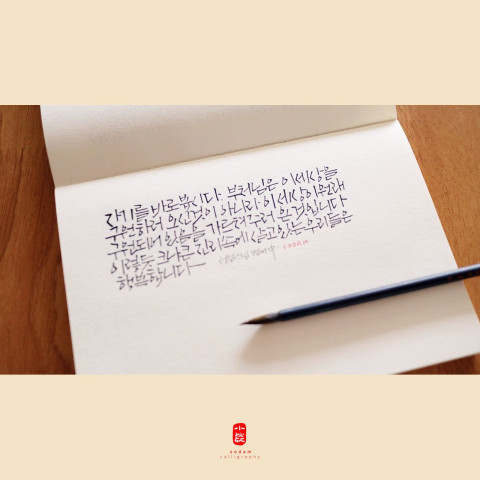 자기를 바로 봅시다. 부처님은 이세상을
구원하러 오신것이 아니라 이세상이 원래
구원되어 있음을 가르쳐주러 온 것입니다
이렇듯 크나큰 진리속에 살고있는 우리들은
행복합니다
성철스님 법어中 SODAM
sodam
calligraphy